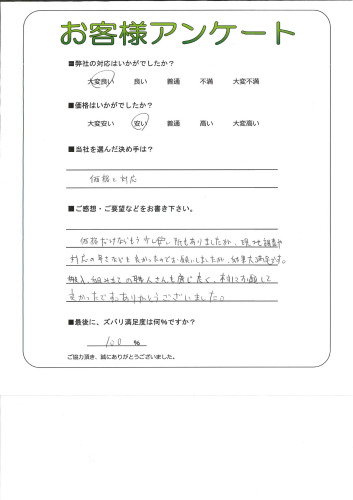 お客様アンケート
■弊社の対応はいかがでしたか？
大変良い 良い 普通 不満 大変不満
■価格はいかがでしたか？
大変安い 安い 普通 高い 大変高い
■当社を選んだ決め手は？
価格と対応
■ご感想・ご要望などをお書き下さい。
価格だけならもう少し安い所もありましたが、現地調査や
対応の早さなども良かったのでお願いしましたが、結果大満足です。
搬入、組み立ての職人さんも感じ良く、本当にお願いして
良かったです。ありがとうございました。
■最後に、ズバリ満足度は何％ですか？
100 ％
ご協力頂き、誠にありがとうございました。